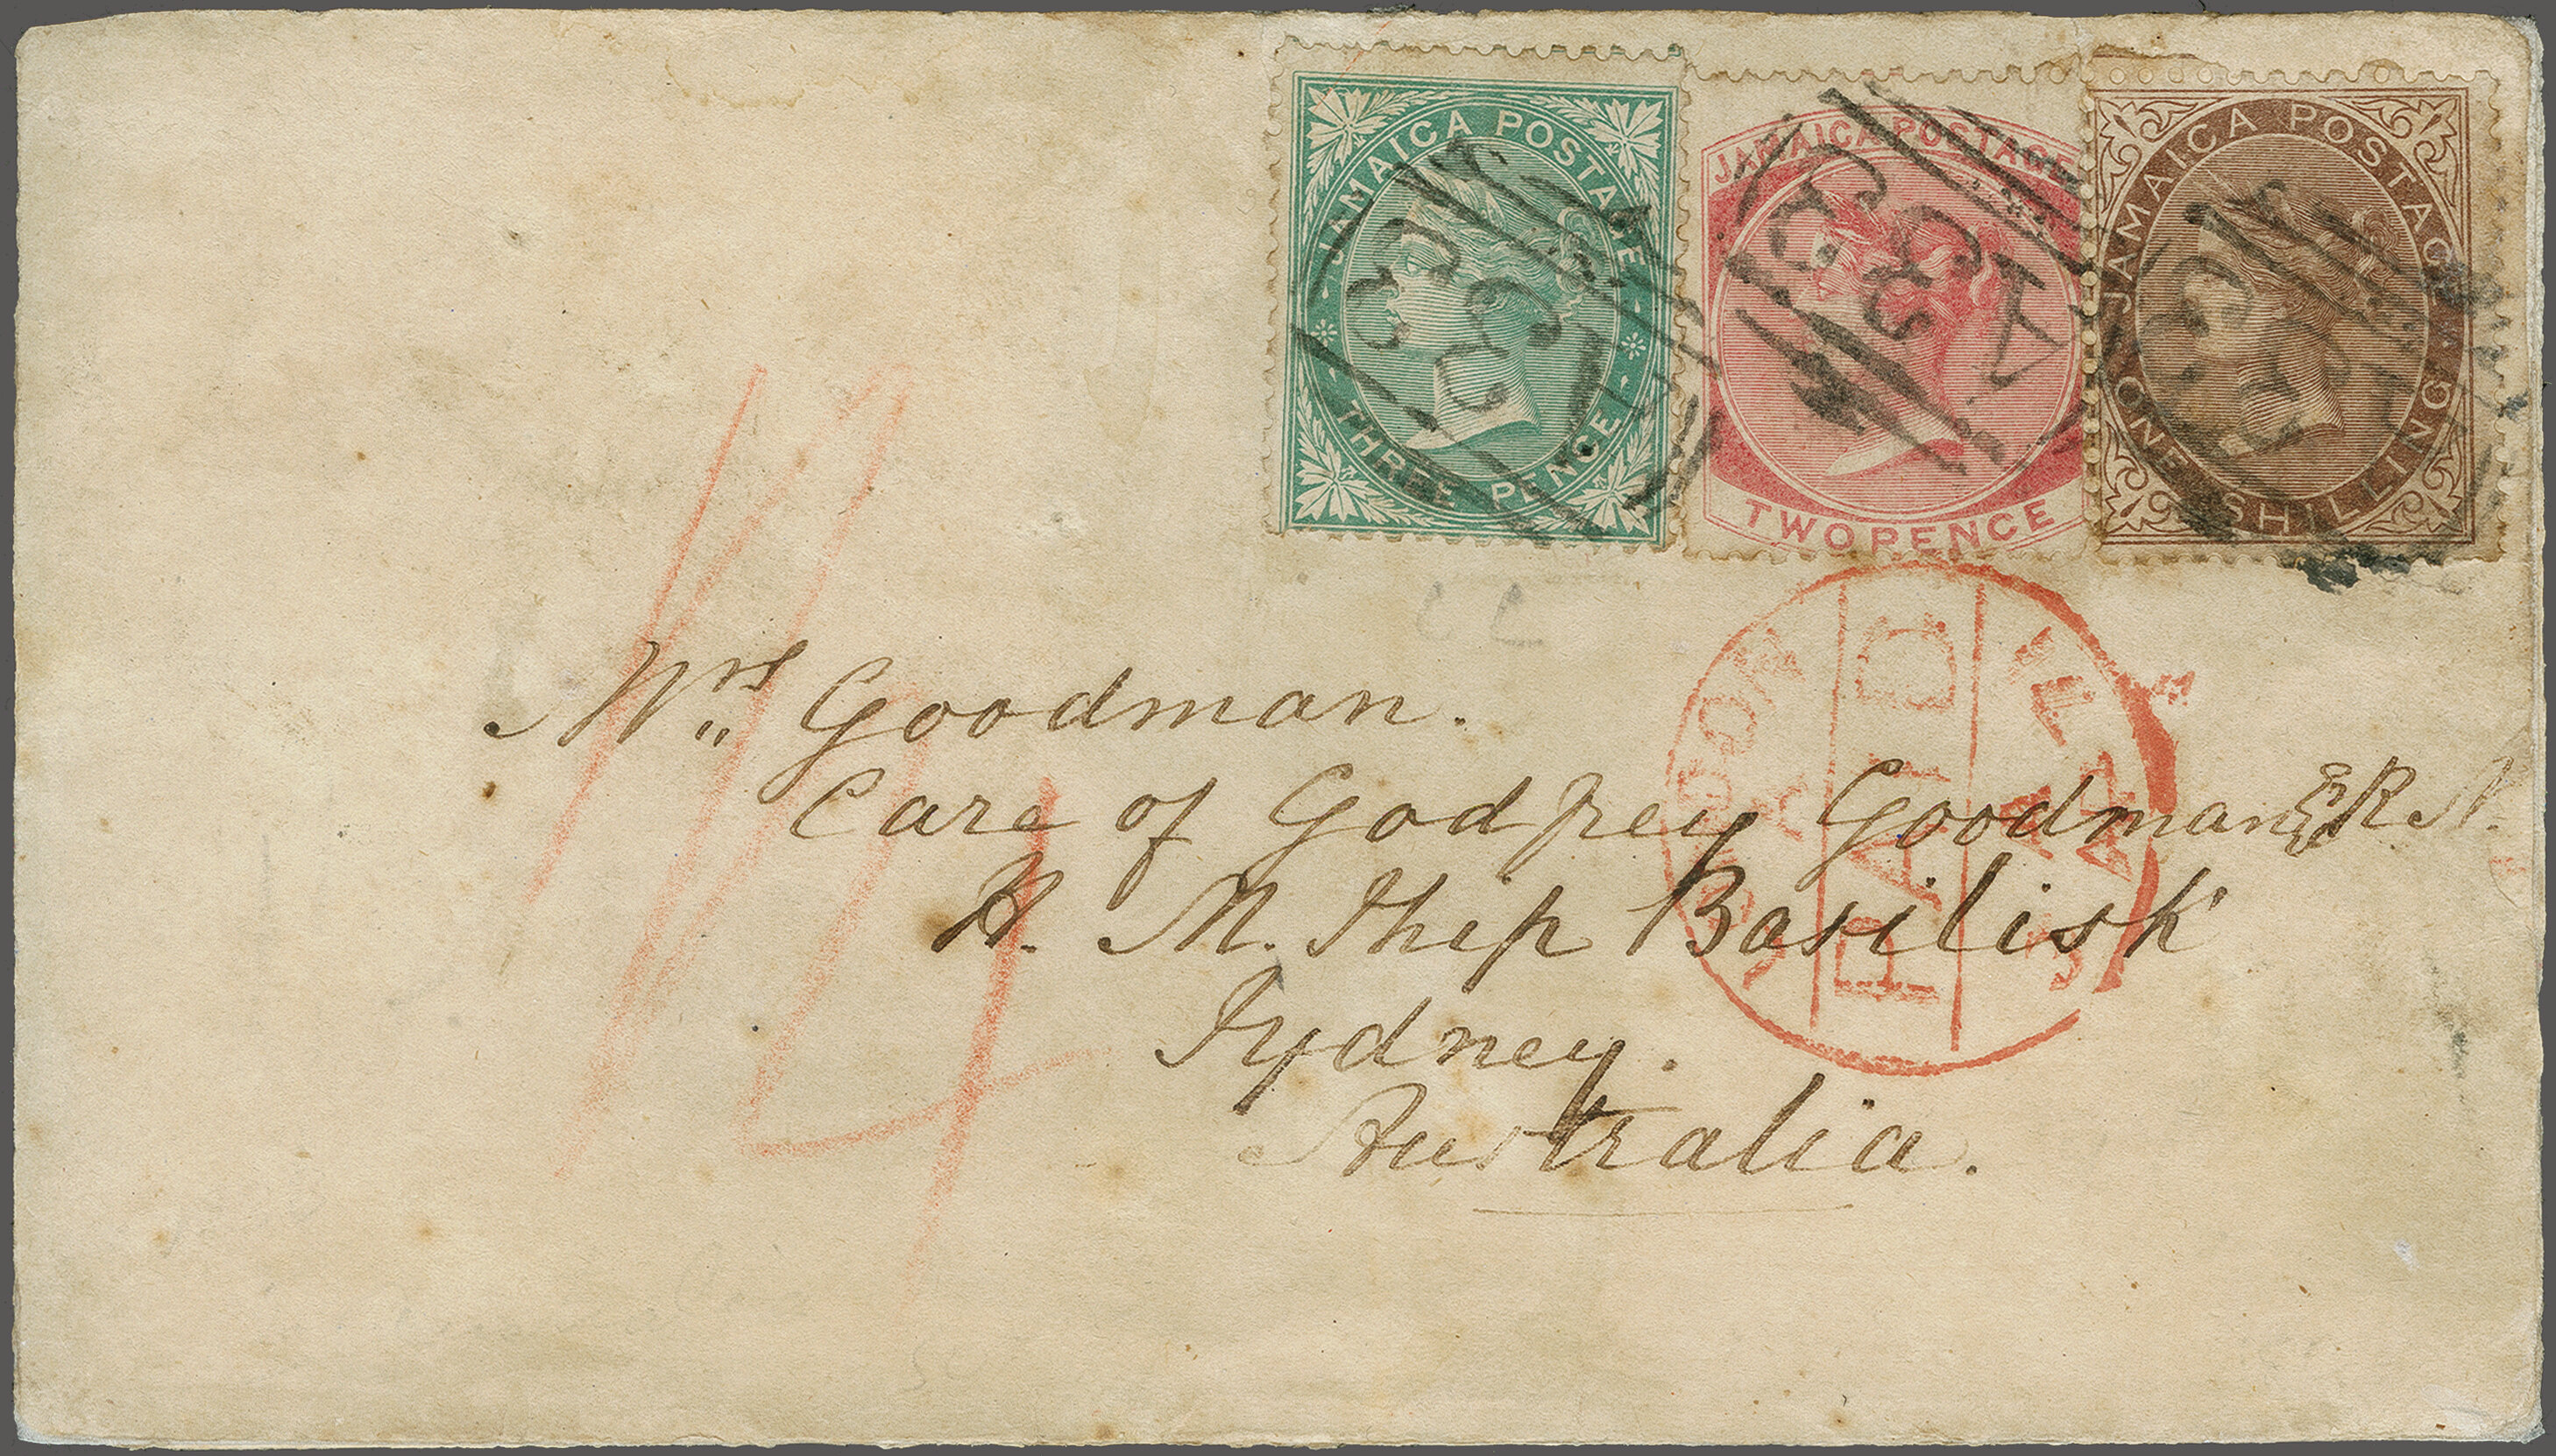 JAMAICA POSTAGE
THREE PENCE
JAMAICA POSTAGE
TWO PENCE
JAMAICA POSTAGE
ONE SHILLING
A
PAID
Mrs Goodman.
Care of Godfrey Goodman Esq R N.
H. M. Ship Basilisk
Sydney.
Australia.